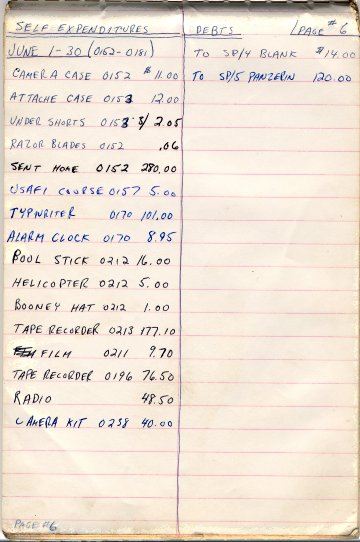 SELF EXPENDITURES
JUNE 1-30 (0152-0181)
CAMERA CASE 0152 $11.00
ATTACHE CASE 0153 12.00
UNDER SHORTS 0153 $/2.05
RAZOR BLADES 0152 .06
SENT HOME 0152 280.00
USAFI COURSE 0157 5.00
TYPWRITER 0170 101.00
ALARM CLOCK 0170 8.95
POOL STICK 0212 16.00
HELICOPTER 0212 5.00
BOONEY HAT 0212 1.00
TAPE RECORDER 0213 177.10
FILM 0211 9.70
TAPE RECORDER 0196 76.50
RADIO 48.50
CAMERA KIT 0238 40.00
PAGE #6
DEBTS PAGE #6
TO SP/4 BLANK $14.00
TO SP/5 PANZERIN 120.00